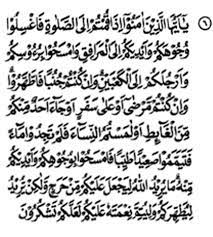 يٰٓاَيُّهَا الَّذِيْنَ اٰمَنُوْٓا اِذَا قُمْتُمْ اِلَى الصَّلٰوةِ فَاغْسِلُوْا ٦
وُجُوْهَكُمْ وَاَيْدِيَكُمْ اِلَى الْمَرَافِقِ وَامْسَحُوْا بِرُءُوْسِكُمْ
وَاَرْجُلَكُمْ اِلَى الْكَعْبَيْنِ وَاِنْ كُنْتُمْ جُنُبًا فَاطَّهَّرُوْا
وَاِنْ كُنْتُمْ مَّرْضٰٓى اَوْ عَلٰى سَفَرٍ اَوْ جَآءَ اَحَدٌ مِّنْكُمْ
مِّنَ الْغَآئِطِ اَوْ لٰمَسْتُمُ النِّسَآءَ فَلَمْ تَجِدُوْا مَآءً
فَتَيَمَّمُوْا صَعِيْدًا طَيِّبًا فَامْسَحُوْا بِوُجُوْهِكُمْ وَاَيْدِيْكُمْ
مِّنْهُ مَا يُرِيْدُ اللّٰهُ لِيَجْعَلَ عَلَيْكُمْ مِّنْ حَرَجٍ وَّلٰكِنْ يُّرِيْدُ
لِيُطَهِّرَكُمْ وَلِيُتِمَّ نِعْمَتَهٗ عَلَيْكُمْ لَعَلَّكُمْ تَشْكُرُوْنَ